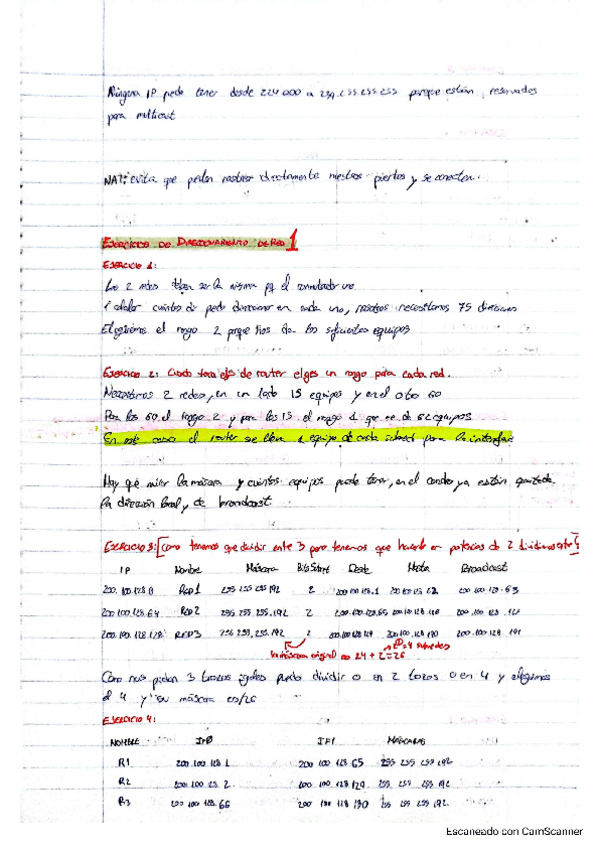 Ninguna IP puede tener desde 224.000 a 239.255.255.255 porque están reservados
para multicast
NAT: evita que puedan rastrear directamente nuestros puertos y se conecten.
EJERCICIOS DE DIRECCIONAMIENTO DE RED 1
EJERCICIO 1:
Las 2 redes tienen ser la misma pq el conmutador une
Calcular cuántos de puedo direccionar en cada uno, nosotros necesitamos 75 direcciones
Elegiremos el rango 2 porque nos da los suficientes equipos
EJERCICIO 2: Cuando toca ejs de router eliges un rango para cada red.
Necesitamos 2 redes, en un lado 15 equipos y en el otro 60
Para los 60 el rango 2 y para los 15 el rango 1 que es de 62 equipos
En este caso el router se lleva 1 equipo de cada subred para la interfaz
Hay que mirar la máscara y cuántos equipos puede tener, en el ya están quitada
la dirección local y de broadcast.
EJERCICIO 3: [Como tenemos que dividir entre 3 pero tenemos que hacerlo en potencias de 2 dividimos entre 4]
IP Nombre Máscara Bits Subred Desde Hasta Broadcast
200.100.128.0 RED1 255.255.255.192 2 200.100.128.1 200.100.128.62 200.100.128.63
200.100.128.64 RED2 255.255.255.192 2 200.100.128.65 200.100.128.126 200.100.128.127
200.100.128.128 RED3 255.255.255.192 2 200.100.128.129 200.100.128.190 200.100.128.191
la máscara original es 24+2=26 2²=4 subredes
Como nos piden 3 trozos iguales puedo dividir o en 2 trozos o en 4 y elegimos
el 4 y su máscara es/26
EJERCICIO 4:
NOMBRE IF0 IF1 MÁSCARAS
R1 200.100.128.1 200.100.128.65 255.255.255.192
R2 200.100.128.2 200.100.128.129 255.255.255.192
R3 200.100.128.66 200.100.128.130 255.255.255.192
Escaneado con CamScanner